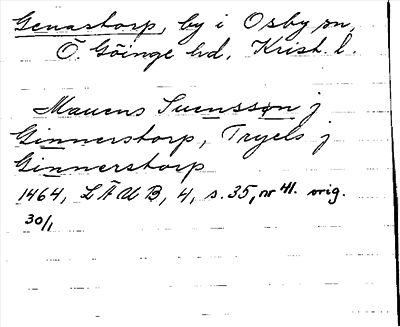 Genastorp, by i Osby sn,
Ö. Göinge hd. Krist. l.
Mauens Suensson j
Ginnerstorp, Tryels j
Ginnerstorp
1464, LÄUB, 4, s. 35, nr 41. orig.
30/1